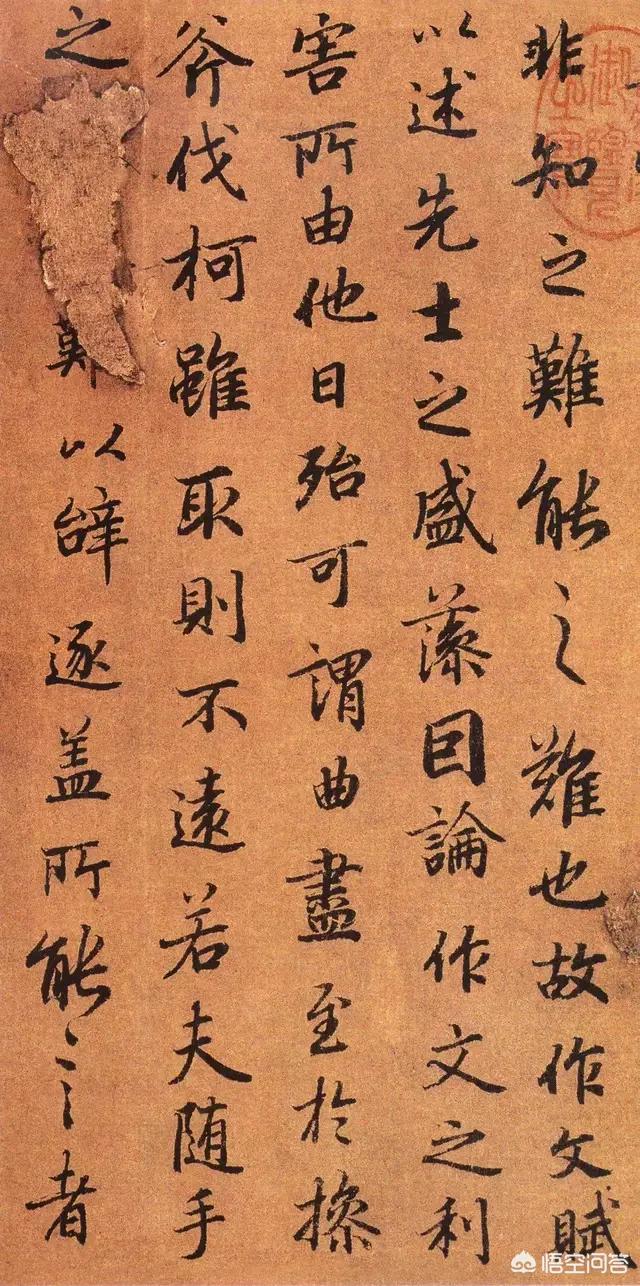 非知之難能之難也故作文賦
以述先士之盛藻因論作文之利
害所由他日殆可謂曲盡至於操
斧伐柯雖取則不遠若夫随手
之以辭逐盖所能言者
悟空问答